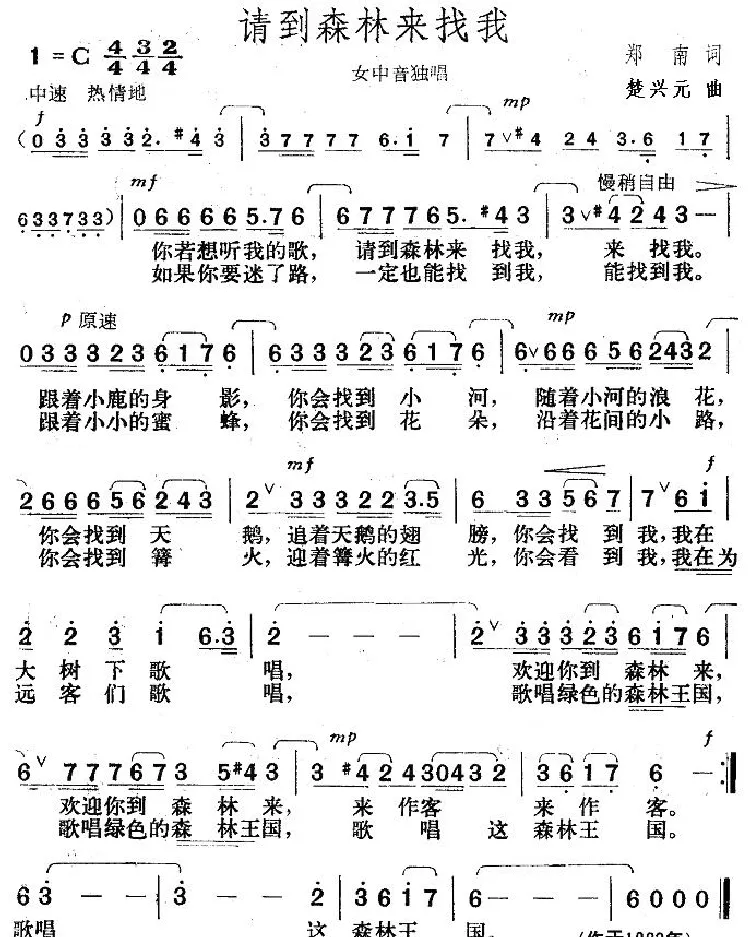 请到森林来找我
1=C 4/4 3/4 2/4
女中音独唱
郑南词
楚兴元曲
中速 热情地
f
mp
(0 3 3 3 3 3 2. #4 3 | 3 7 7 7 7 6. 1 7 | 7 ∨ #4 2 4 3. 6 1 7
mf
慢稍自由
6 3 3 7 3 3) | 0 6 6 6 6 6 5. 7 6 | 6 7 7 7 7 6 5. #4 3 | 3 ∨ #4 2 4 3 — |
你若想听我的歌, 请到森林来 找我, 来 找我。
如果你要迷了路, 一定也能找 到我, 能找到我。
p 原速
mp
0 3 3 3 3 2 3 6 1 7 6 | 6 3 3 3 3 2 3 6 1 7 6 | 6 ∨ 6 6 6 5 6 2 4 3 2 |
跟着小鹿的身 影, 你会找到 小 河, 随着小河的浪 花,
跟着小小的蜜 蜂, 你会找到 花 朵, 沿着花间的小 路,
mf
f
2 6 6 6 5 6 2 4 3 | 2 ∨ 3 3 3 2 2 3. 5 | 6 3 3 5 6 7 | 7 ∨ 6 1
你会找到 天 鹅, 追着天鹅的翅 膀, 你会找 到 我, 我在
你会找到 篝 火, 迎着篝火的红 光, 你会看 到 我, 我在为
2 2 3 1 6. 3 | 2 — — — | 2 ∨ 3 3 3 2 3 6 1 7 6 |
大 树 下 歌 唱, 欢迎你到 森林 来,
远 客 们 歌 唱, 歌唱绿色的森林王国,
mp
f
6 ∨ 7 7 7 6 7 3 5 #4 3 | 3 #4 2 4 3 0 4 3 2 | 3 6 1 7 6 — :||
欢迎你到 森 林 来, 来 作客 来 作 客。
歌唱绿色的森 林王国, 歌 唱 这 森林王 国。
6 3 — — | 3 — — 2 | 3 6 1 7 | 6 — — | 6 0 0 0 ||
歌唱 这 森林王 国。